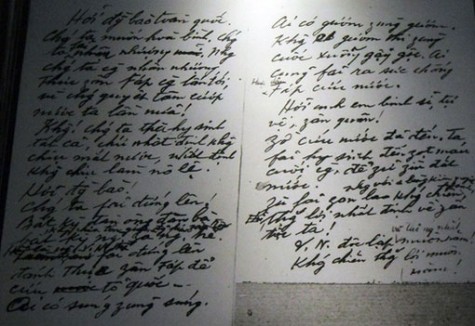 Hỡi đg bào toàn quốc.
Chg ta muốn hoà bình, chg
ta nhân nhượng. Nhg
chg ta cg nhân nhượng
thực zân Fáp cg lấn tới,
vì chg quyết tâm cướp
nước ta lần nữa!
Khg! Chg ta thà hy sinh
tất cả, chứ nhất định khg
chịu mất nước, nhất định
khg chịu làm nô lệ.
Hỡi đg bào!
Chg ta fải đứng lên!
Bất kỳ đàn ông đàn bà
fải đứng lên
đánh thực zân Fáp để
cứu tổ quốc –
Ai có súng zùng súng.
Ai có gươm zùng gươm.
Khg có gươm thì zùng
cuốc xuổng gậy gộc. Ai
cũng fải ra sức chống
Fáp cứu nước.
Hỡi anh em binh sĩ, tự
vệ, zân quân!
Zờ cứu nước đã đến, ta
fải hy sinh đến zọt máu
cuối cg, để zữ zìn đất
nước.
Zù fải gian lao khg chiến
thg lợi nhất định về zân
tộc ta!
V.N. độc lập muôn năm!
Khg chiến thg lợi muôn
năm!